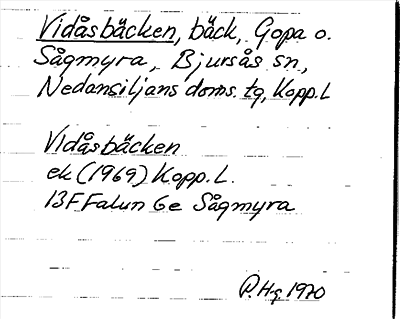 Vidåsbäcken, bäck, Gopa o.
Sågmyra, Bjursås sn,
Nedansiljans doms. tg, Kopp. L
Vidåsbäcken
ek (1969) Kopp. L.
13F Falun 6e Sågmyra
P.Hg. 1970